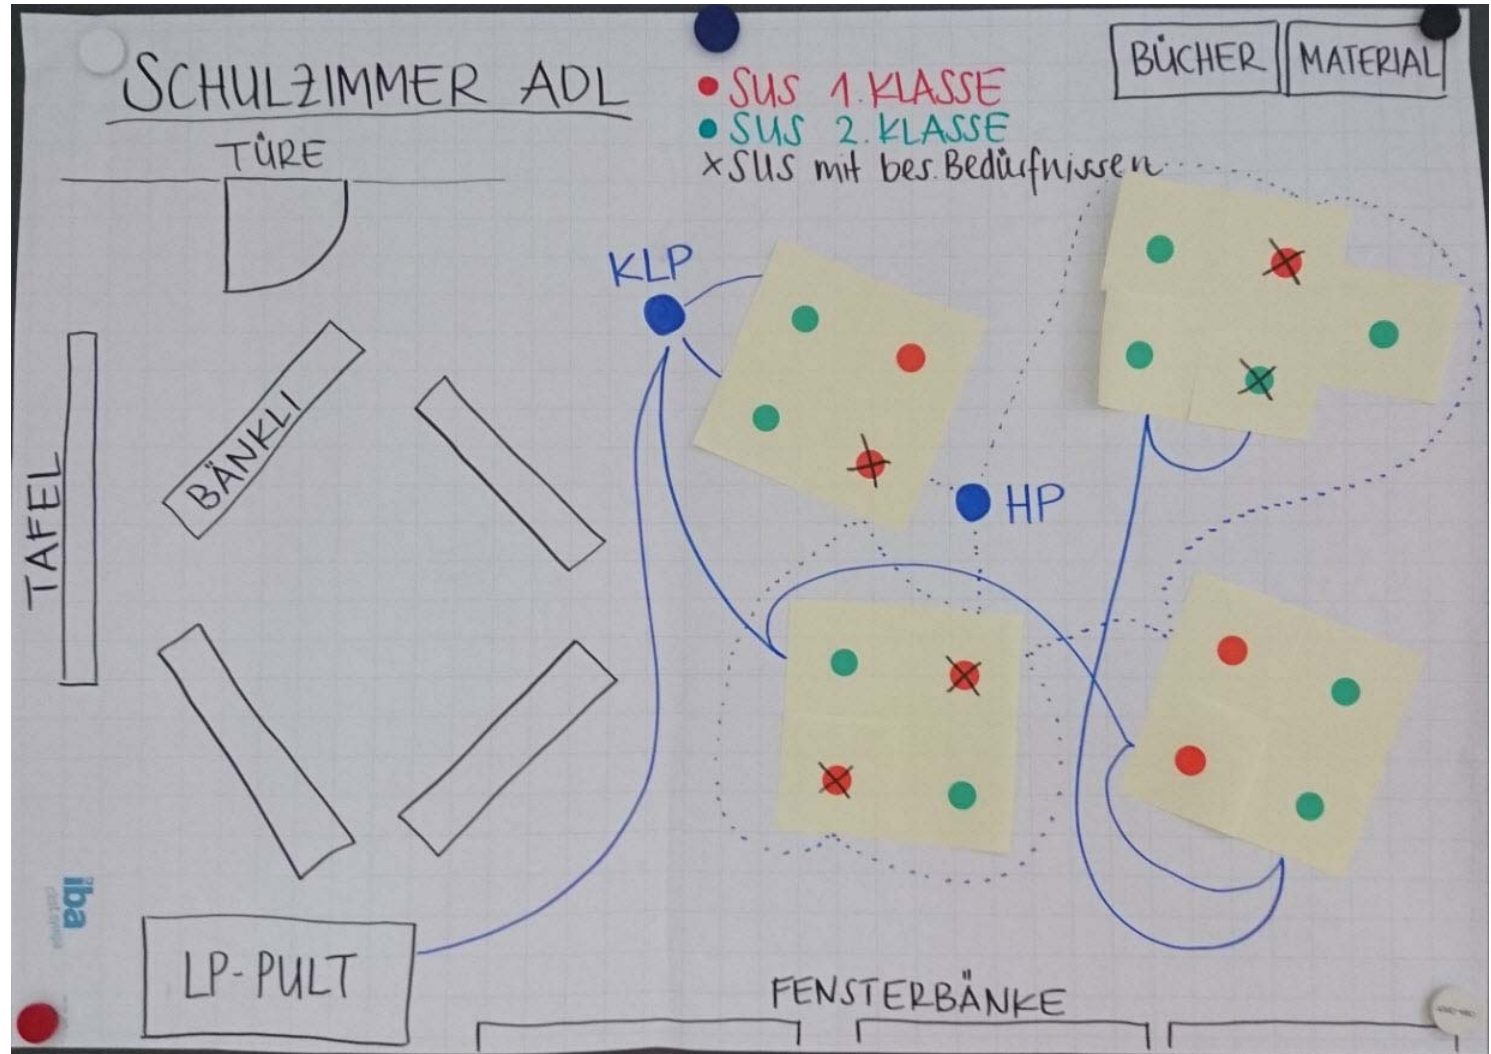 SCHULZIMMER ADL
• SUS 1. KLASSE
• SUS 2. KLASSE
x SUS mit bes. Bedürfnissen
BÜCHER
MATERIAL
TÜRE
KLP
BÄNKLI
TAFEL
HP
LP-PULT
FENSTERBÄNKE
iba